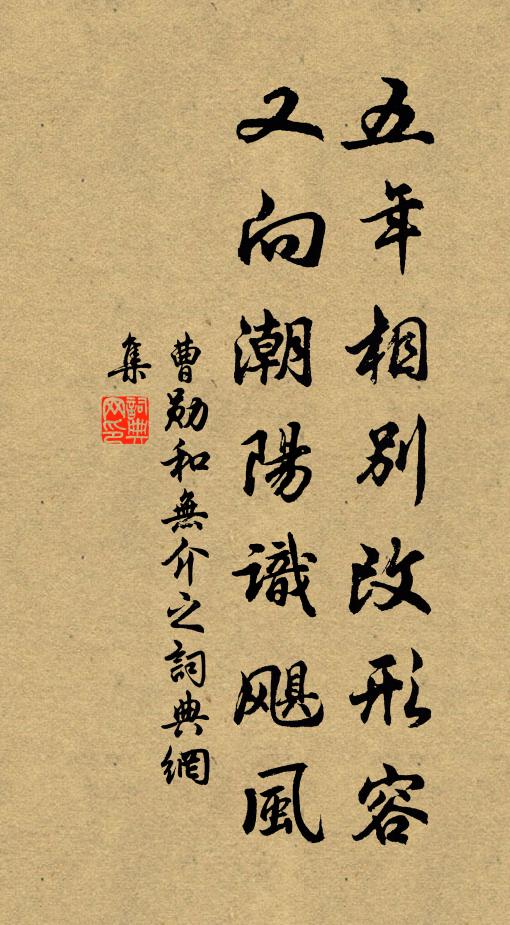 五年相別改形容
又向潮陽識颶風
曹勛和無介之詞典網
集
詞典
网印